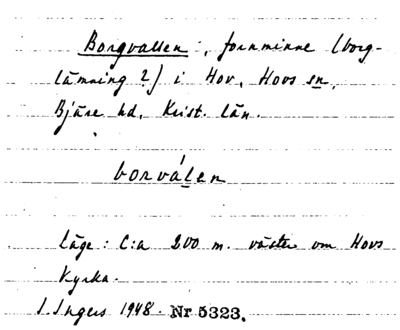 Borgvallen: fornminne (borg-
lämning?) i Hov, Hovs sn,
Bjäre hd, Krist. län.
borválen
Läge: C:a 200 m. väster om Hovs
Kyrka.
I. Ingers 1948. Nr 5323.